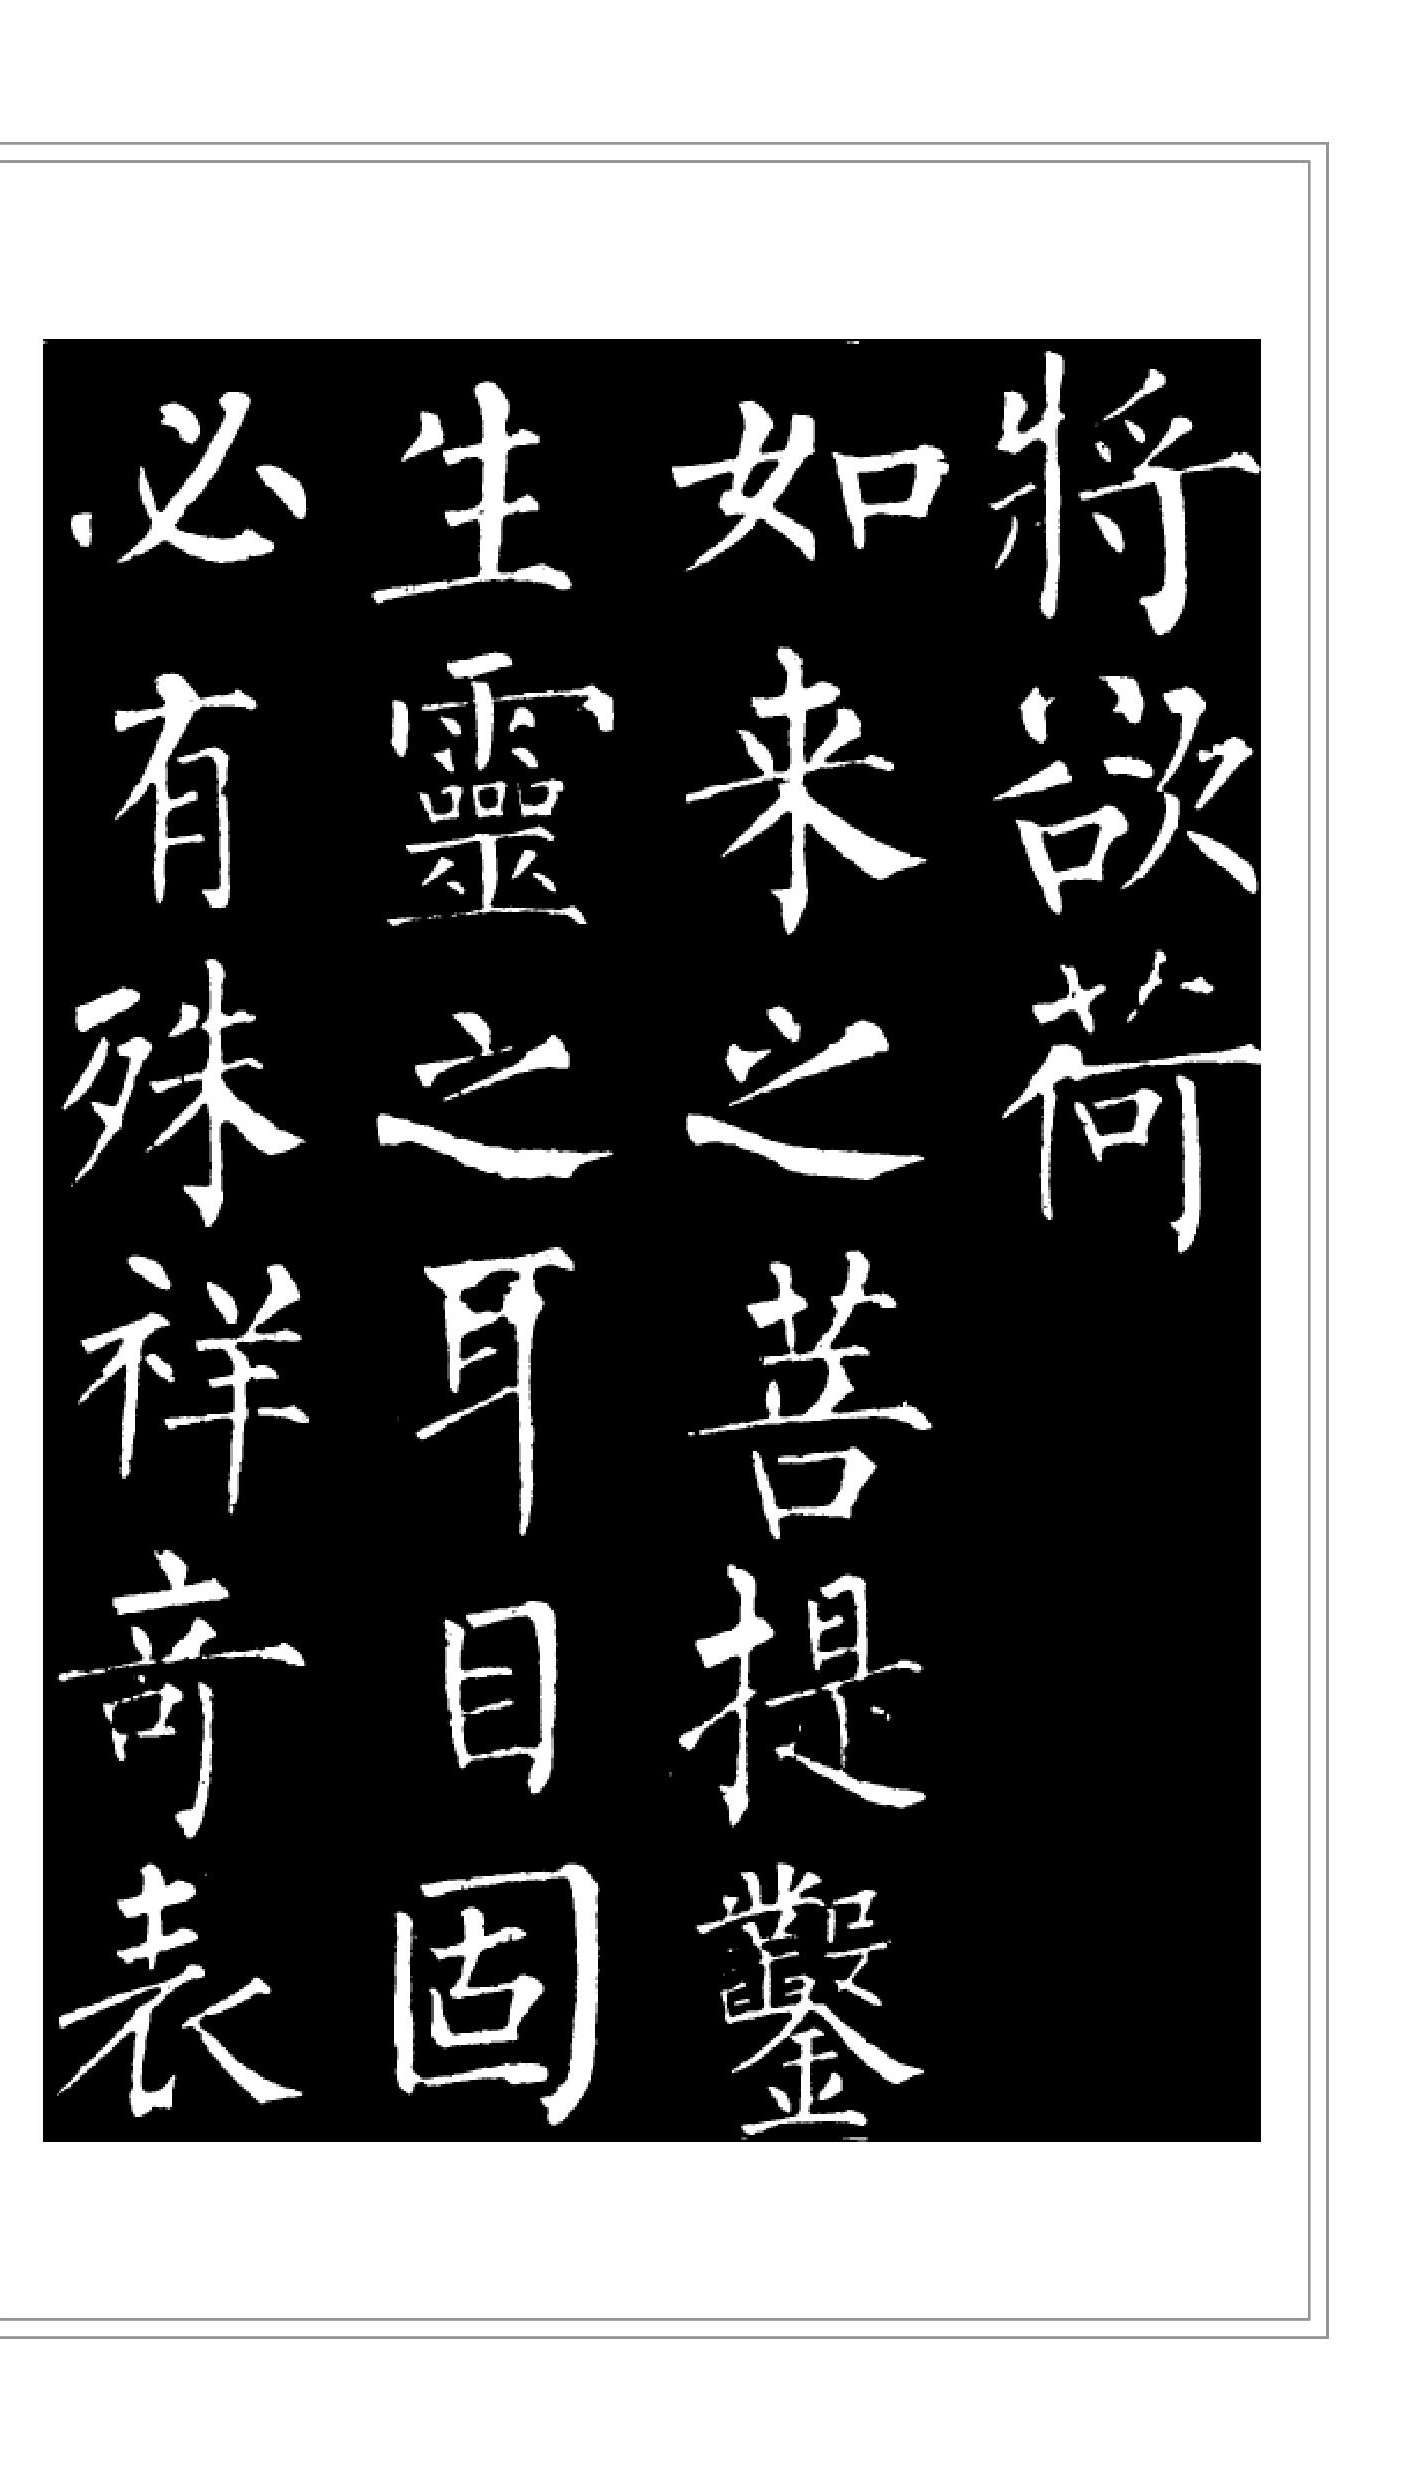 將欲荷
如来之菩提鑿
生靈之耳目固
必有殊祥竒表